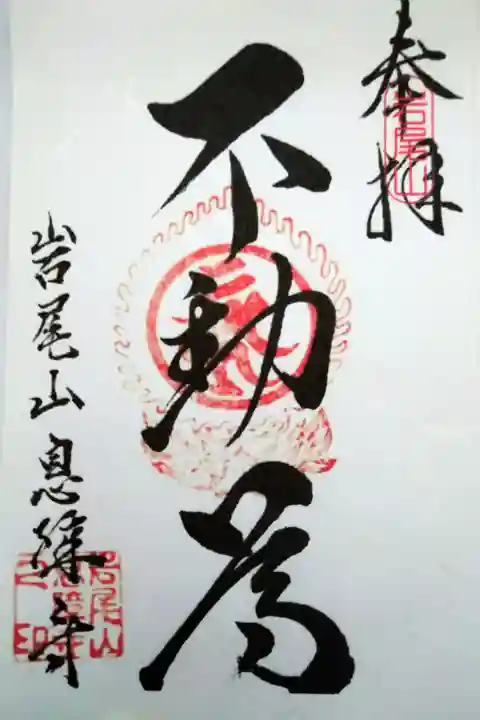 奉拝
岩尾山
不動尊
岩尾山息障寺
岩尾山
息障寺
之印